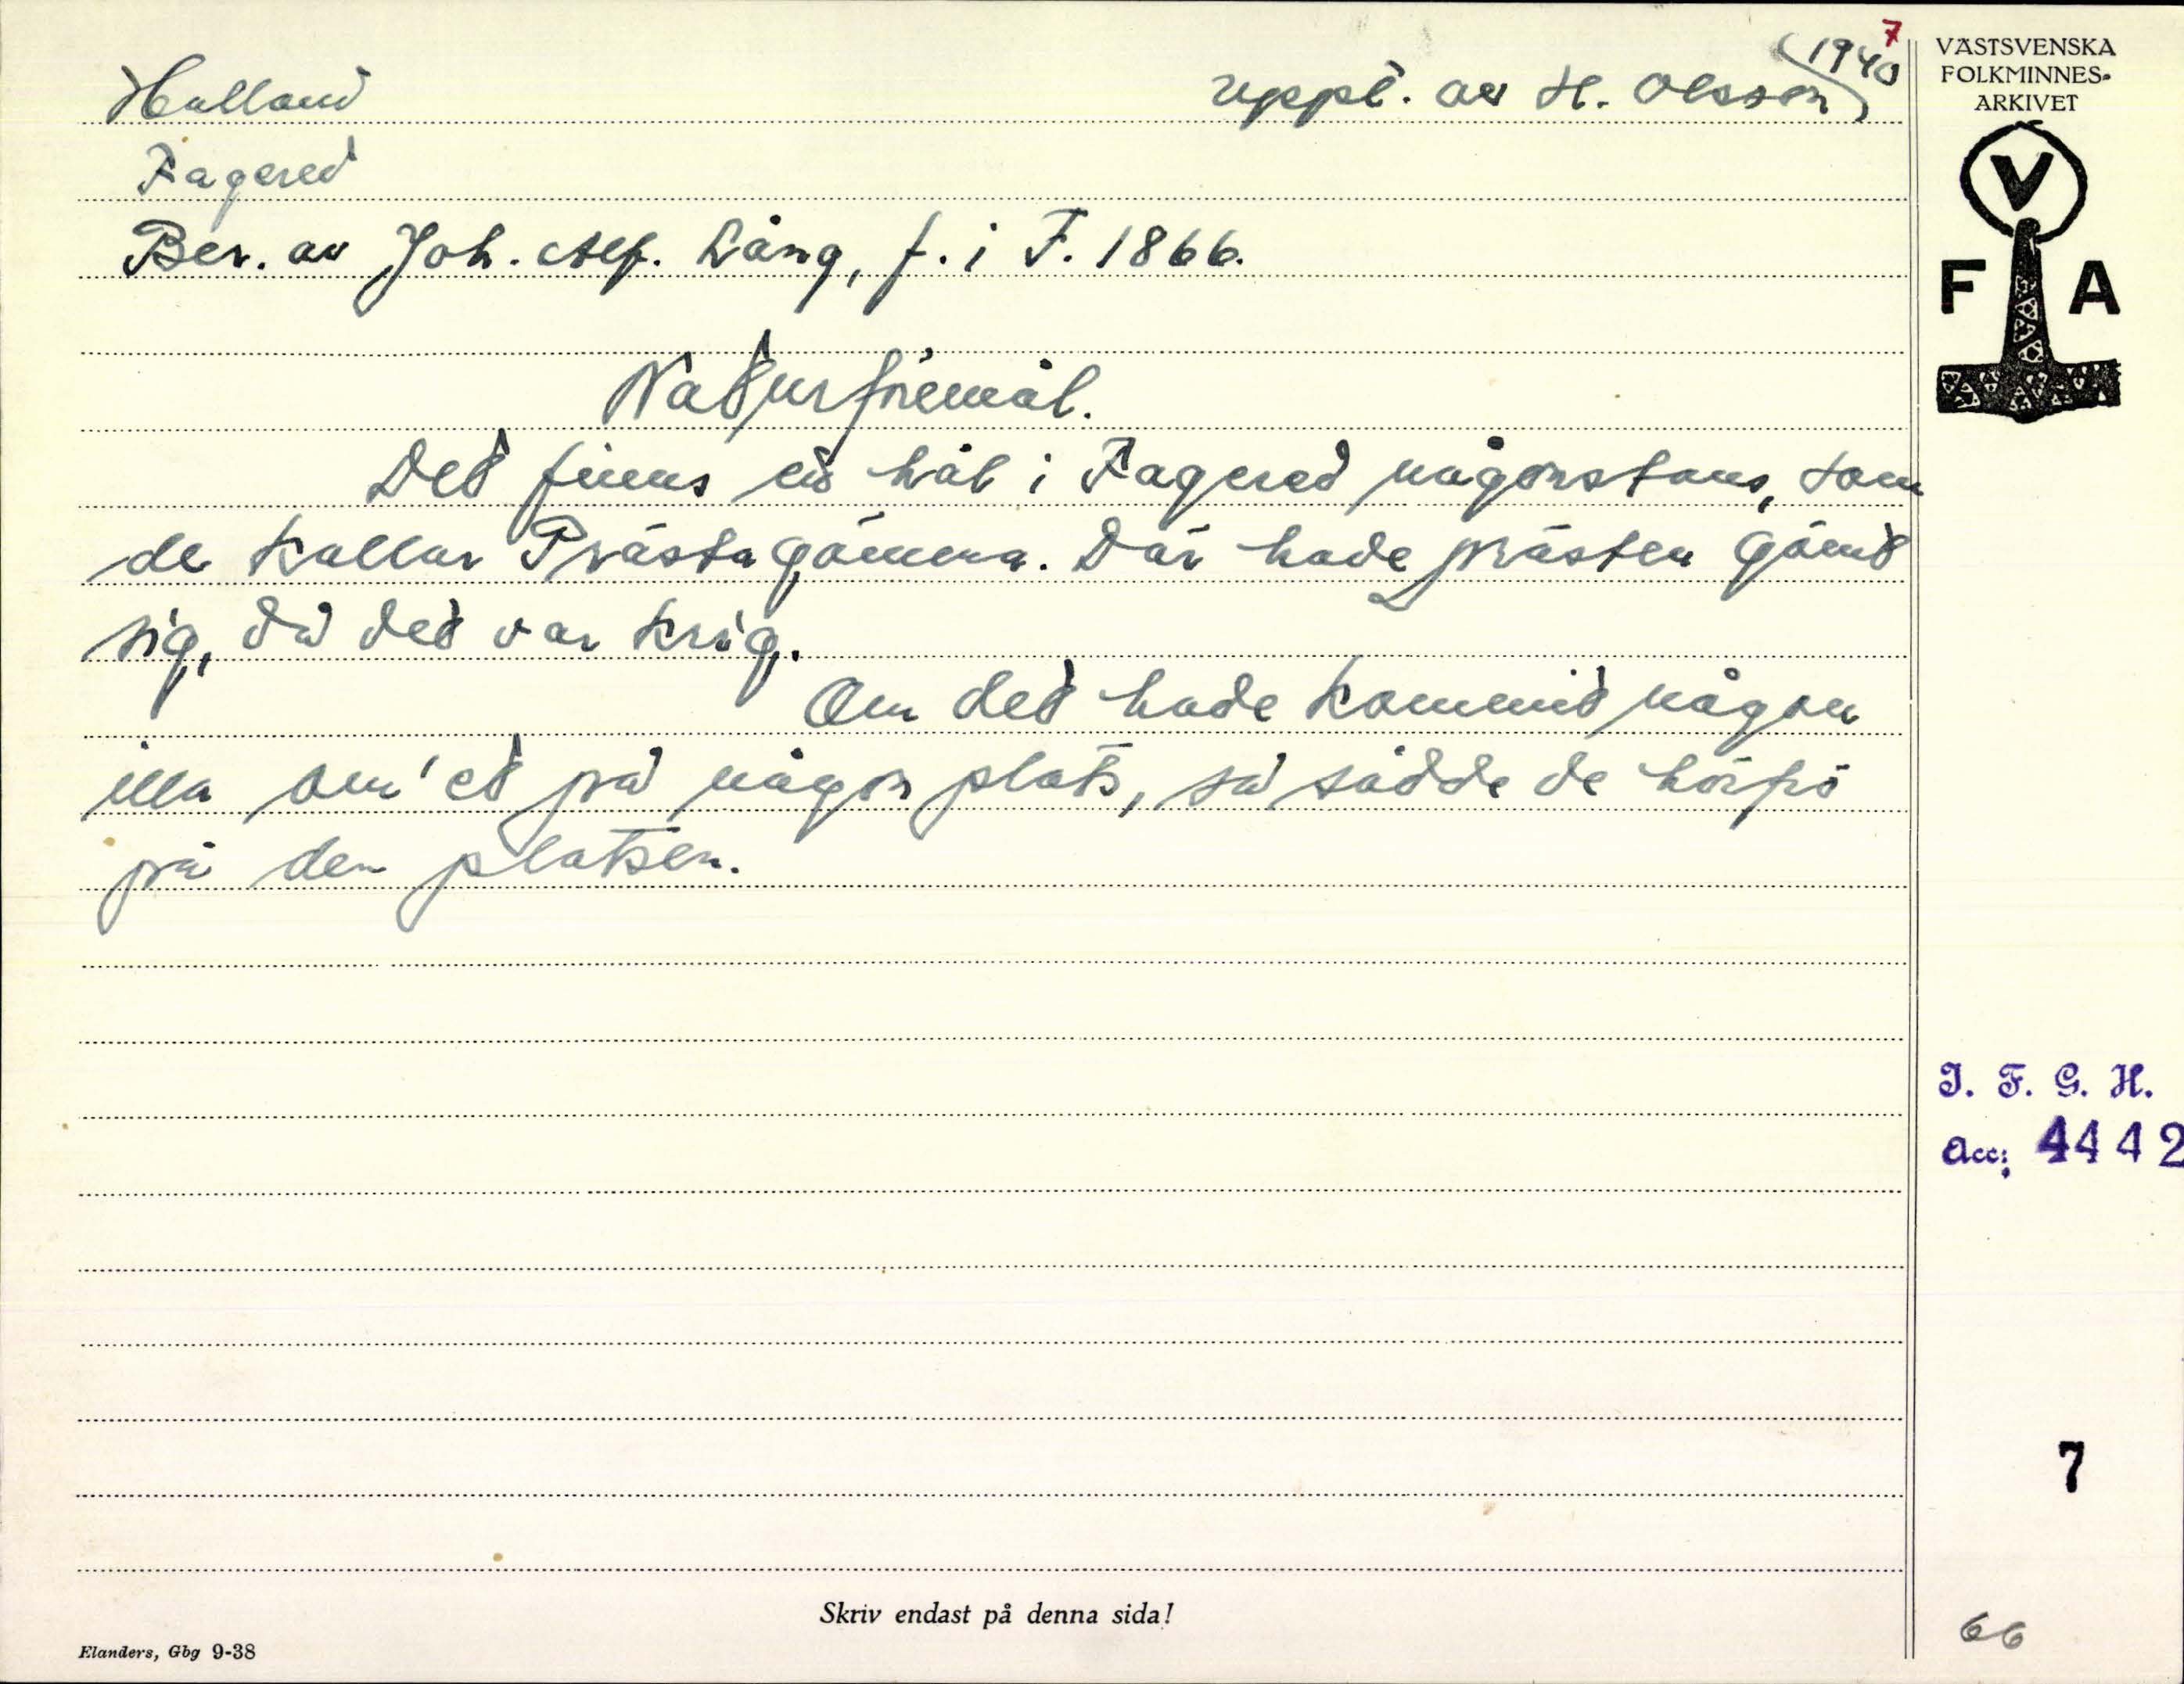 7
(1940)
Halland uppt. av H. Olsson
Fagered
Ber. av Joh. Alf. Lång, f. i F. 1866.
Naturföremål.
Det finns ett hål i Fagered någonstans, som
de kallar Prästagömma. Där hade prästen gömt
sig, då det var krig.
Om det hade kommit någon
illa om'et på någon plats, så sådde de hörfrö
på den platsen.
VÄSTSVENSKA
FOLKMINNES-
ARKIVET
V
F A
I. F. G. H.
Acc: 4442
7
66
Skriv endast på denna sida!
Elanders, Gbg 9-38